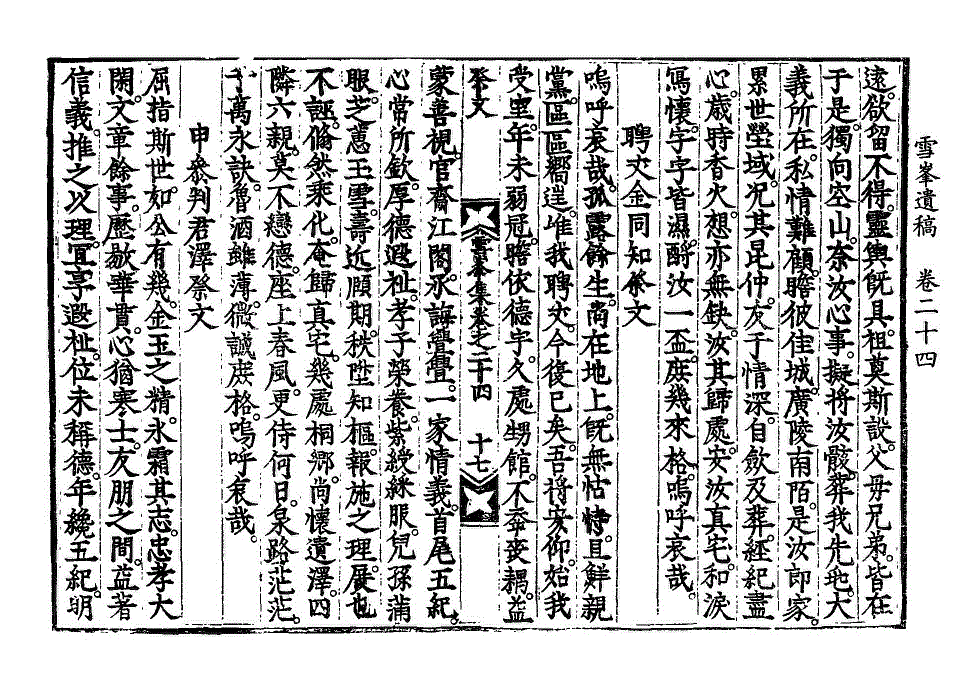 雪峯遺稿 卷二十四
遠。欲留不得。靈輿旣具。祖奠斯設。父母兄弟。皆在
于是。獨向空山。奈汝心事。擬將汝骸。葬我先地。大
義所在。私情難顧。瞻彼佳城。廣陵南陌。是汝郞家
累世塋域。况其昆仲。友于情深。自斂及葬。經紀盡
心。歲時香火。想亦無缺。汝其歸處。安汝真宅。和淚
寫懷。字字皆濕。酹汝一盃。庶幾來格。嗚呼哀哉。
聘父金同知祭文
嗚呼哀哉。孤露餘生。尙在地上。旣無怙恃。且鮮親
黨。區區嚮逞。唯我聘父。今復已矣。吾將安仰。始我
受室。年未弱冠。瞻依德宇。久處甥館。不幸喪耦。益
祭文 雪峯集卷之二十四 十七
蒙善視。官齋江閣。承誨亹亹。一家情義。首尾五紀。
心常所欽。厚德遐祉。孝子榮養。紫綬綵服。兒孫滿
眼。芝蕙玉雪。壽近頤期。秩陞知樞。報施之理。展也
不誣。翛然乘化。奄歸真宅。幾處桐鄉。尙懷遺澤。四
隣六親。莫不戀德。座上春風。更侍何日。泉路茫茫。
千萬永訣。魯酒雖薄。微誠庶格。嗚呼哀哉。
申參判君澤祭文
屈指斯世。如公有幾。金玉之精。氷霜其志。忠孝大
閑。文章餘事。歷敭華貫。心猶寒士。友朋之間。益著
信義。推之以理。宜享遐祉。位未稱德。年纔五紀。明